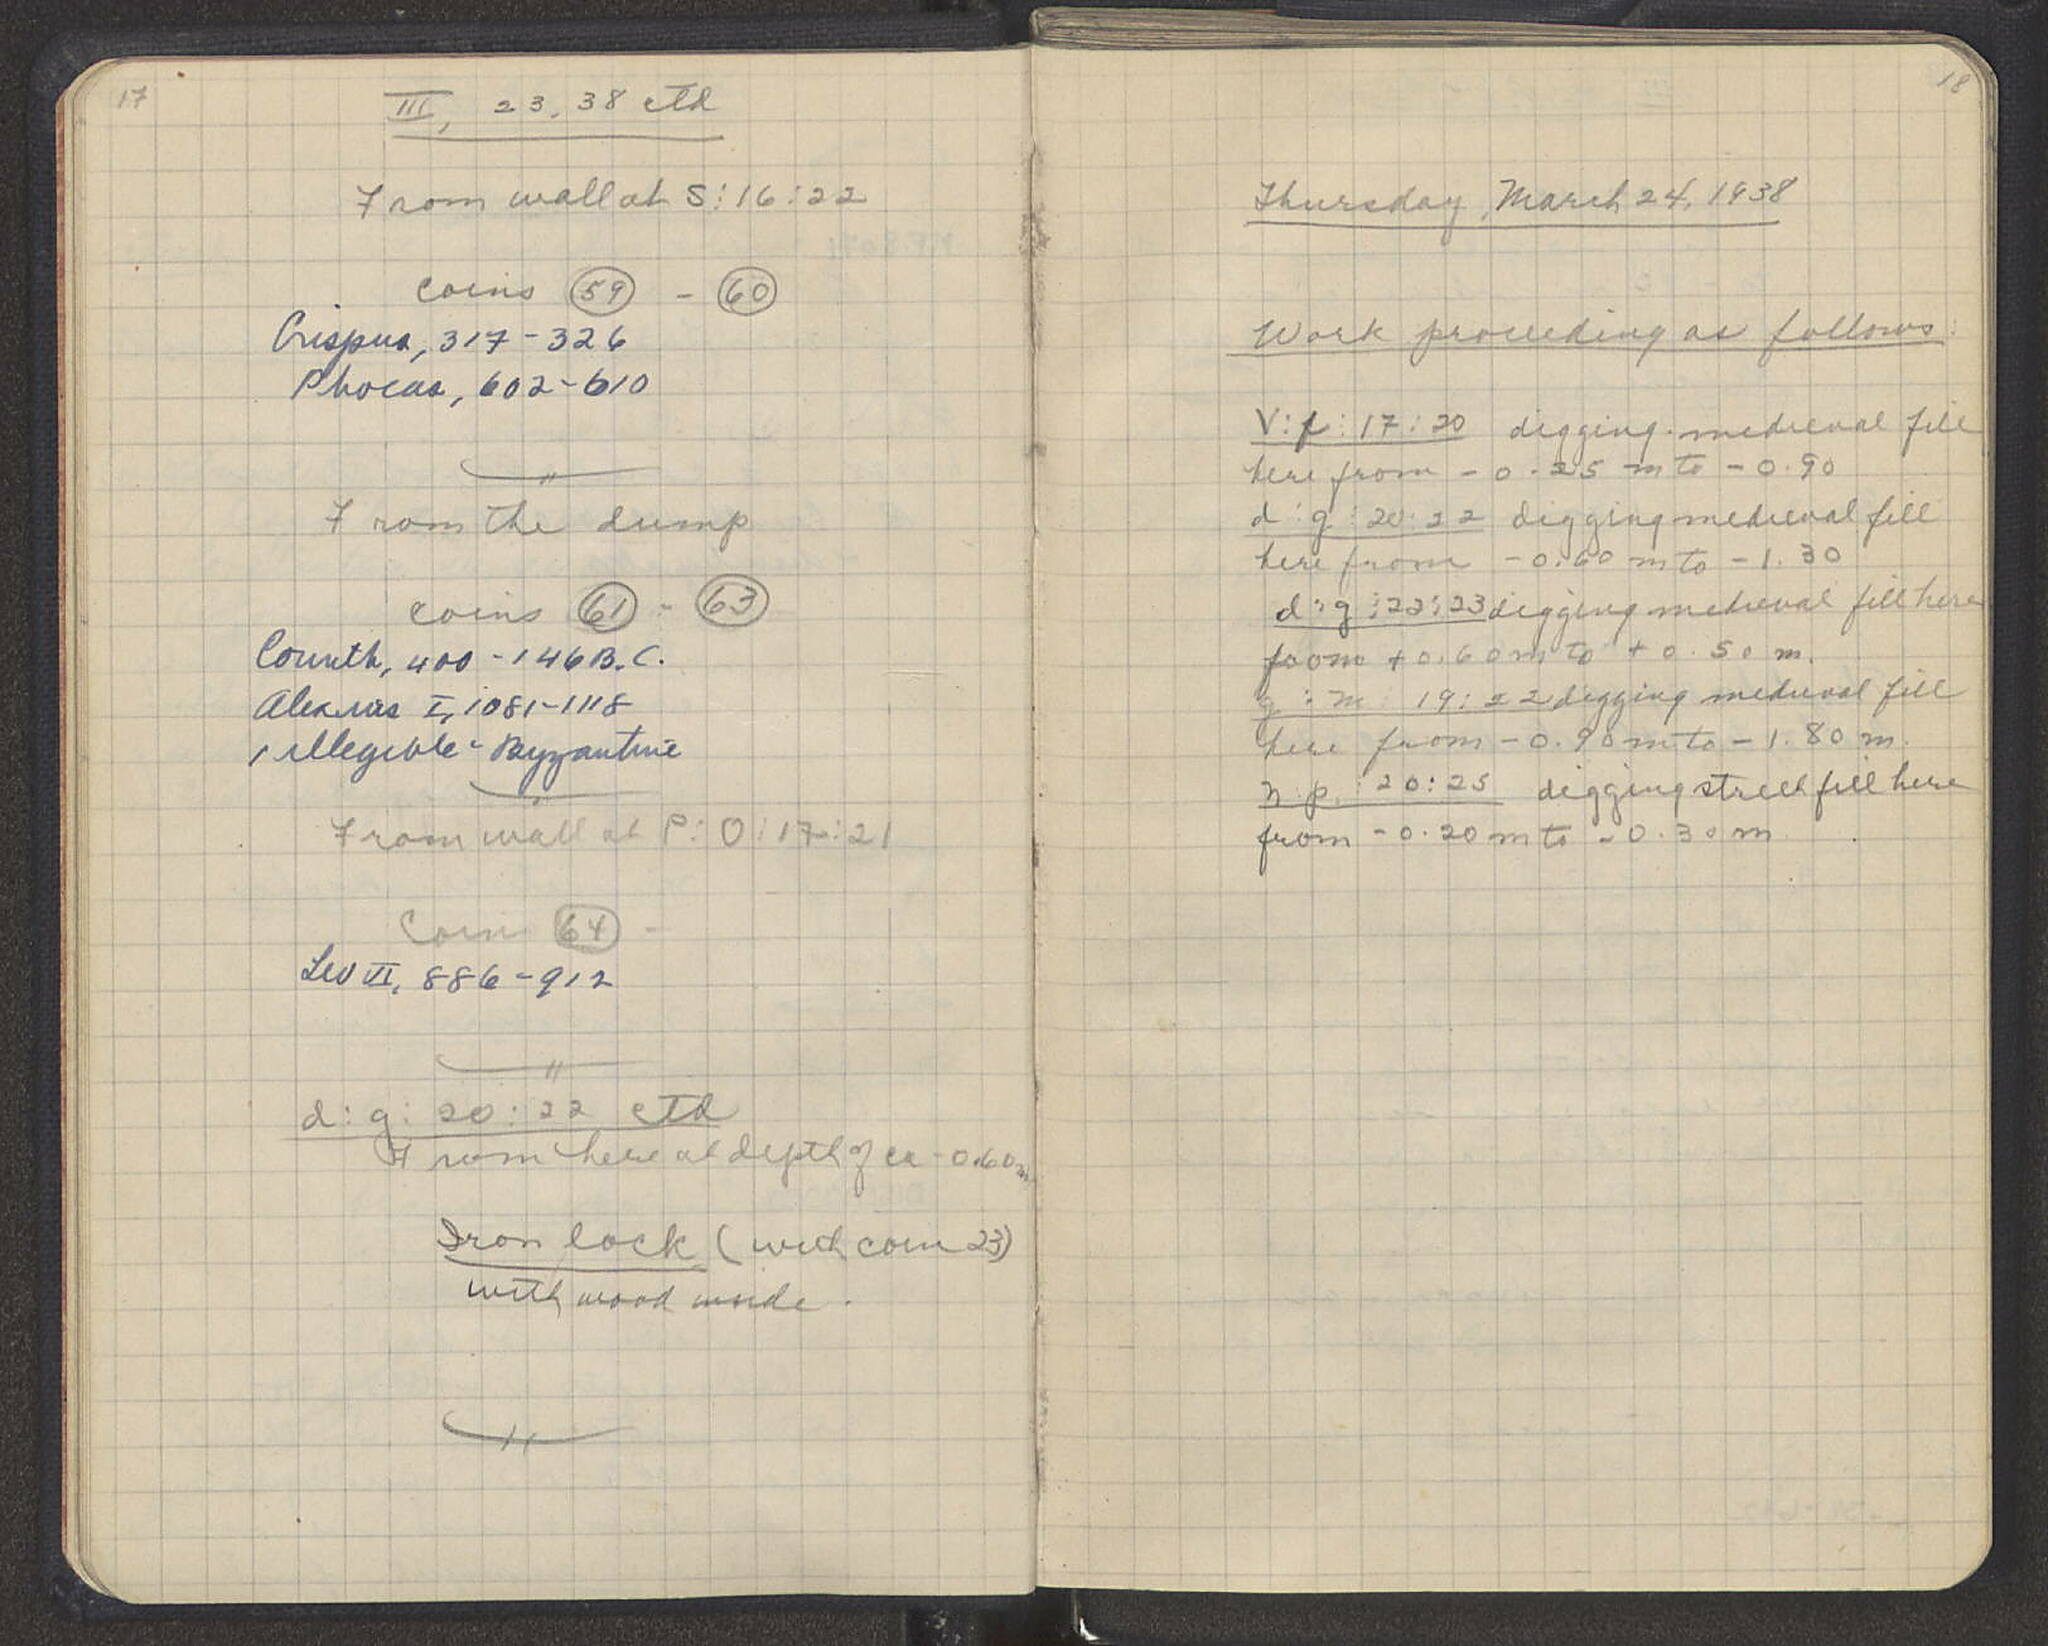 17
III, 23, 38 ctd
From wall at S:16:22
coins 59 - 60
Crispus, 317-326
Phocas, 602-610
From the dump
coins 61 - 63
Corinth, 400-146 B.C.
Alexius I, 1081-1118
1 illegible - Byzantine
From wall at P:O:17:21
Coin 64 -
Leo VI, 886-912
d:g:20:22 ctd
From here at depth of ca -0.60m
Iron lock (with coin 23)
with wood inside.
18
Thursday, March 24, 1938
Work proceeding as follows:
V:f:17:20 digging medieval fill
here from -0.25 m to -0.90
d:g:20:22 digging medieval fill
here from -0.60 m to -1.30
d:g:22:23 digging medieval fill here
from +0.60 m to +0.50 m.
g:m:19:22 digging medieval fill
here from -0.90 m to -1.80 m.
n:p:20:25 digging street fill here
from -0.20 m to -0.30 m